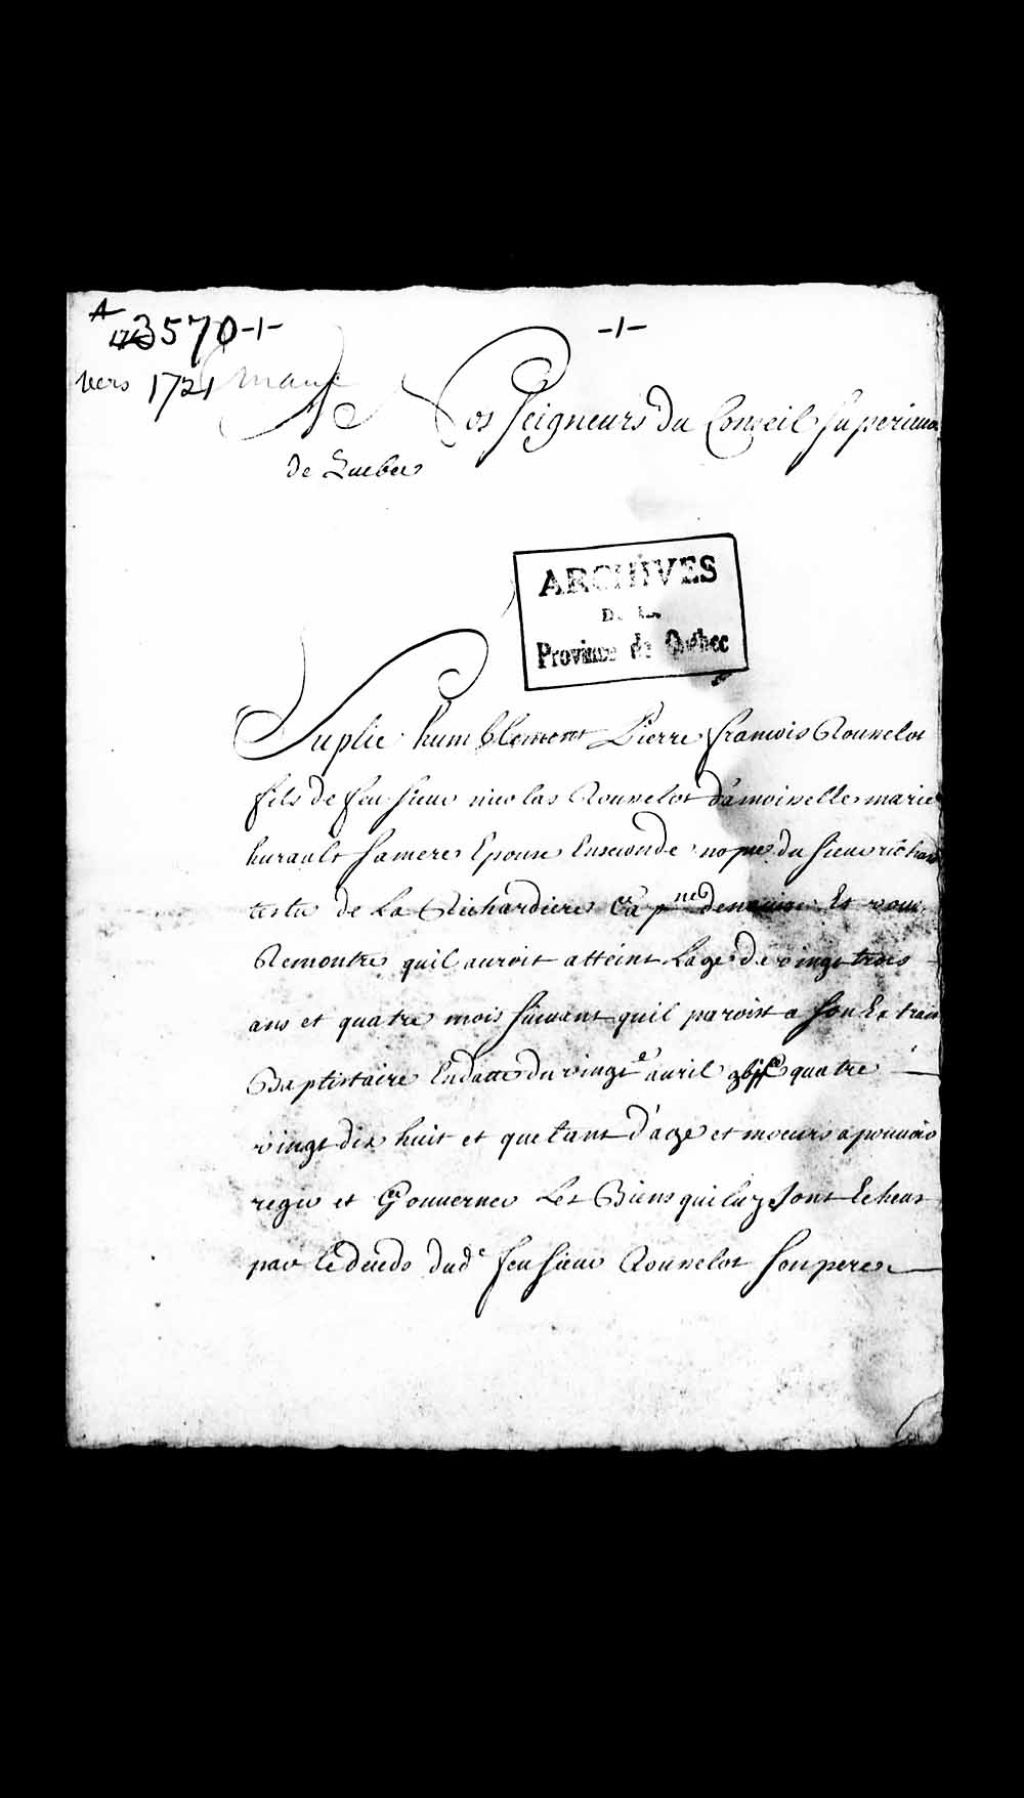 A
3570-1-
-1-
vers 1721
A Nos Seigneurs du Conseil Superieur
de Quebec
ARCHIVES
DE LA
Province de Québec
Suplie humblement Pierre francois Rouvelot
fils de feu sieur nicolas Rouvelot damoiselle marie
hurault sa mere Epouse En seconde nopce du sieur richard
testu de La Richardiere Cap.ne de Et vous
Remontre quil auroit atteint Lage de vingt trois
ans et quatre mois suivant quil paroist a son Extrait
Baptistaire En datte du vingt avril gbjjC quatre
vingt dix huit et quetant d'age et moeurs a pouvoir
regir et Gouverner Les Biens qui luy sont Echeus
par Le deceds dud.e feu sieur Rouvelot son pere